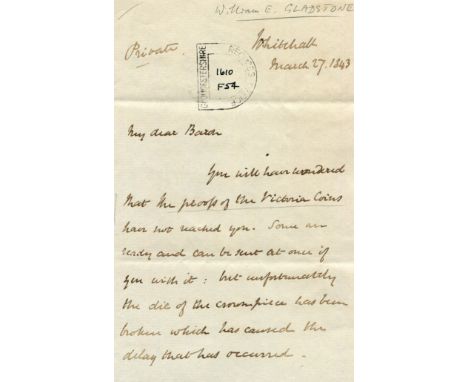 William E. GLADSTONE
Private.
Whitehall
March 27. 1843
GLOUCESTERSHIRE
RECORDS OFFICE
1610
F54
My dear Baron
You will have wondered
that the proofs of the Victoria Coins
have not reached you. Some are
ready and can be sent at once if
you wish it: but unfortunately
the die of the crownpiece has been
broken which has caused the
delay that has occurred.